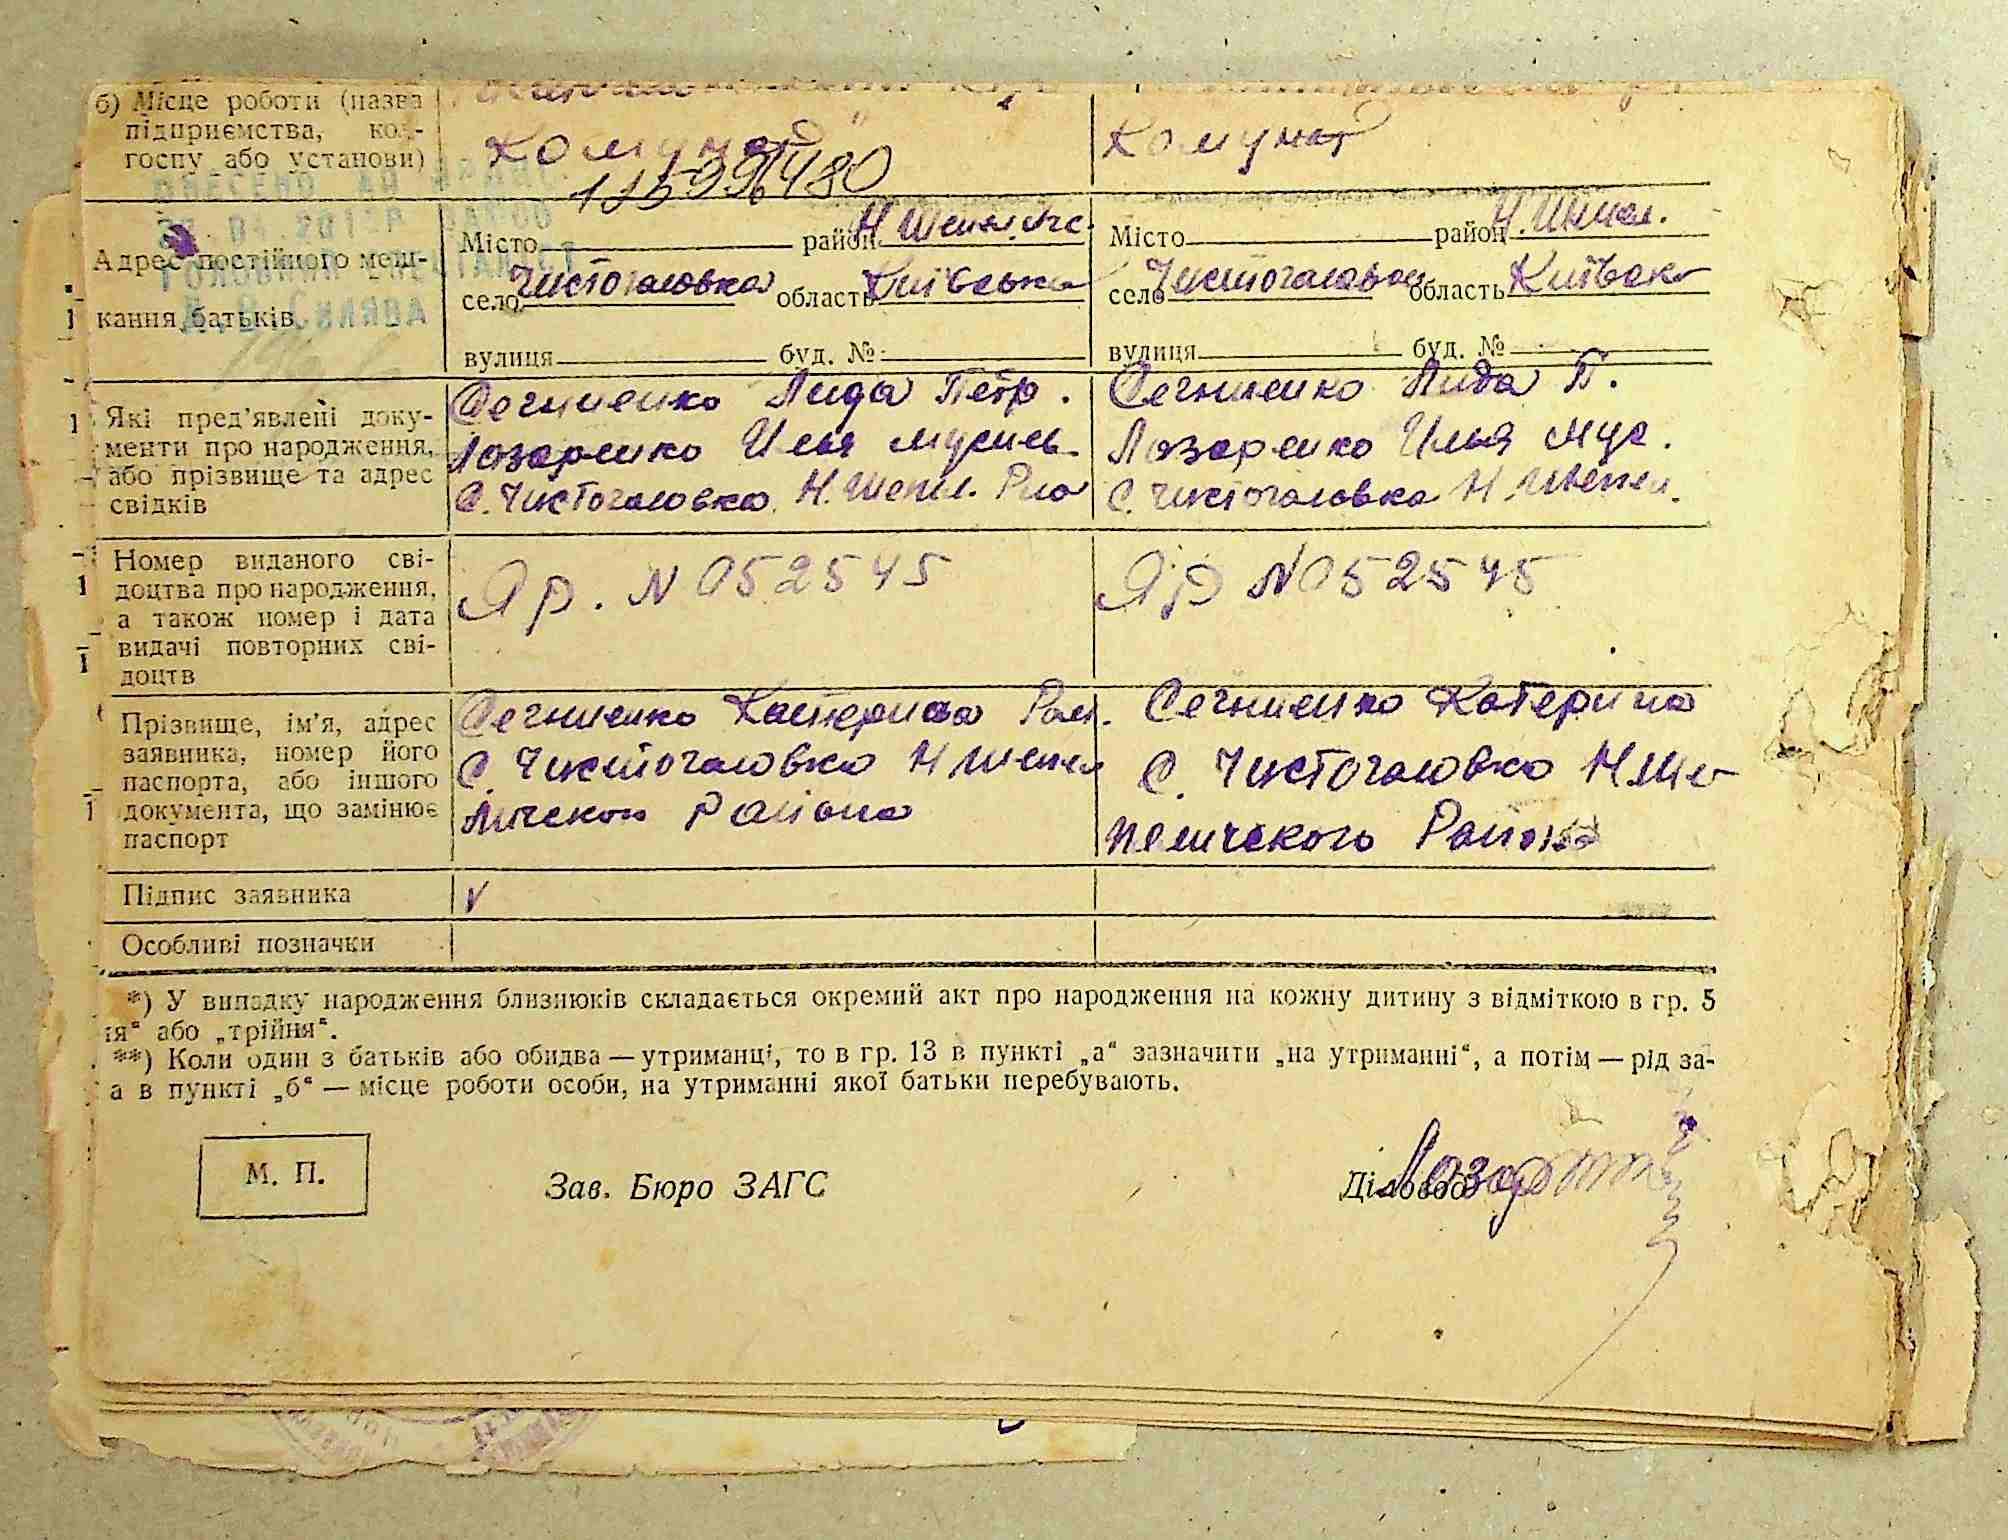 б) Місце роботи (назва
підприємства, кол-
госпу або установи)
Комунар"
Комунар
115996480
Адрес постійного меш-
кання батьків
Місто район Н Шепеличс.
село Чистогаловка область Київська
вулиця буд. №
Місто район Н. Шепел.
село Чистогаловка область Київськ
вулиця буд. №
Які пред'явлені доку-
менти про народження,
або прізвище та адрес
свідків
Сечниенко Лида Петр.
Лозаренко Илья мусиев.
С. Чистогаловка. Н. Шепел. Р
Сечниенко Лида П.
Лозаренко Илья мус.
С. Чистогаловка Н Шепел.
Номер виданого сві-
доцтва про народження,
а також номер і дата
видачі повторних сві-
доцтв
Яр. N 052545
ЯР N 052545
Прізвище, ім'я, адрес
заявника, номер його
паспорта, або іншого
документа, що замінює
паспорт
Сечниенко Катерина Ром.
С. Чистогаловка Н Шепел
личского Района
Сечниенко Катерина
С. Чистогаловка Н Ше-
пеличского Района
Підпис заявника
V
Особливі позначки
*) У випадку народження близнюків складається окремий акт про народження на кожну дитину з відміткою в гр. 5
ія" або „трійня".
**) Коли один з батьків або обидва — утриманці, то в гр. 13 в пункті „а" зазначити „на утриманні", а потім — рід за-
а в пункті „б" — місце роботи особи, на утриманні якої батьки перебувають.
М. П.
Зав. Бюро ЗАГС
Діловод